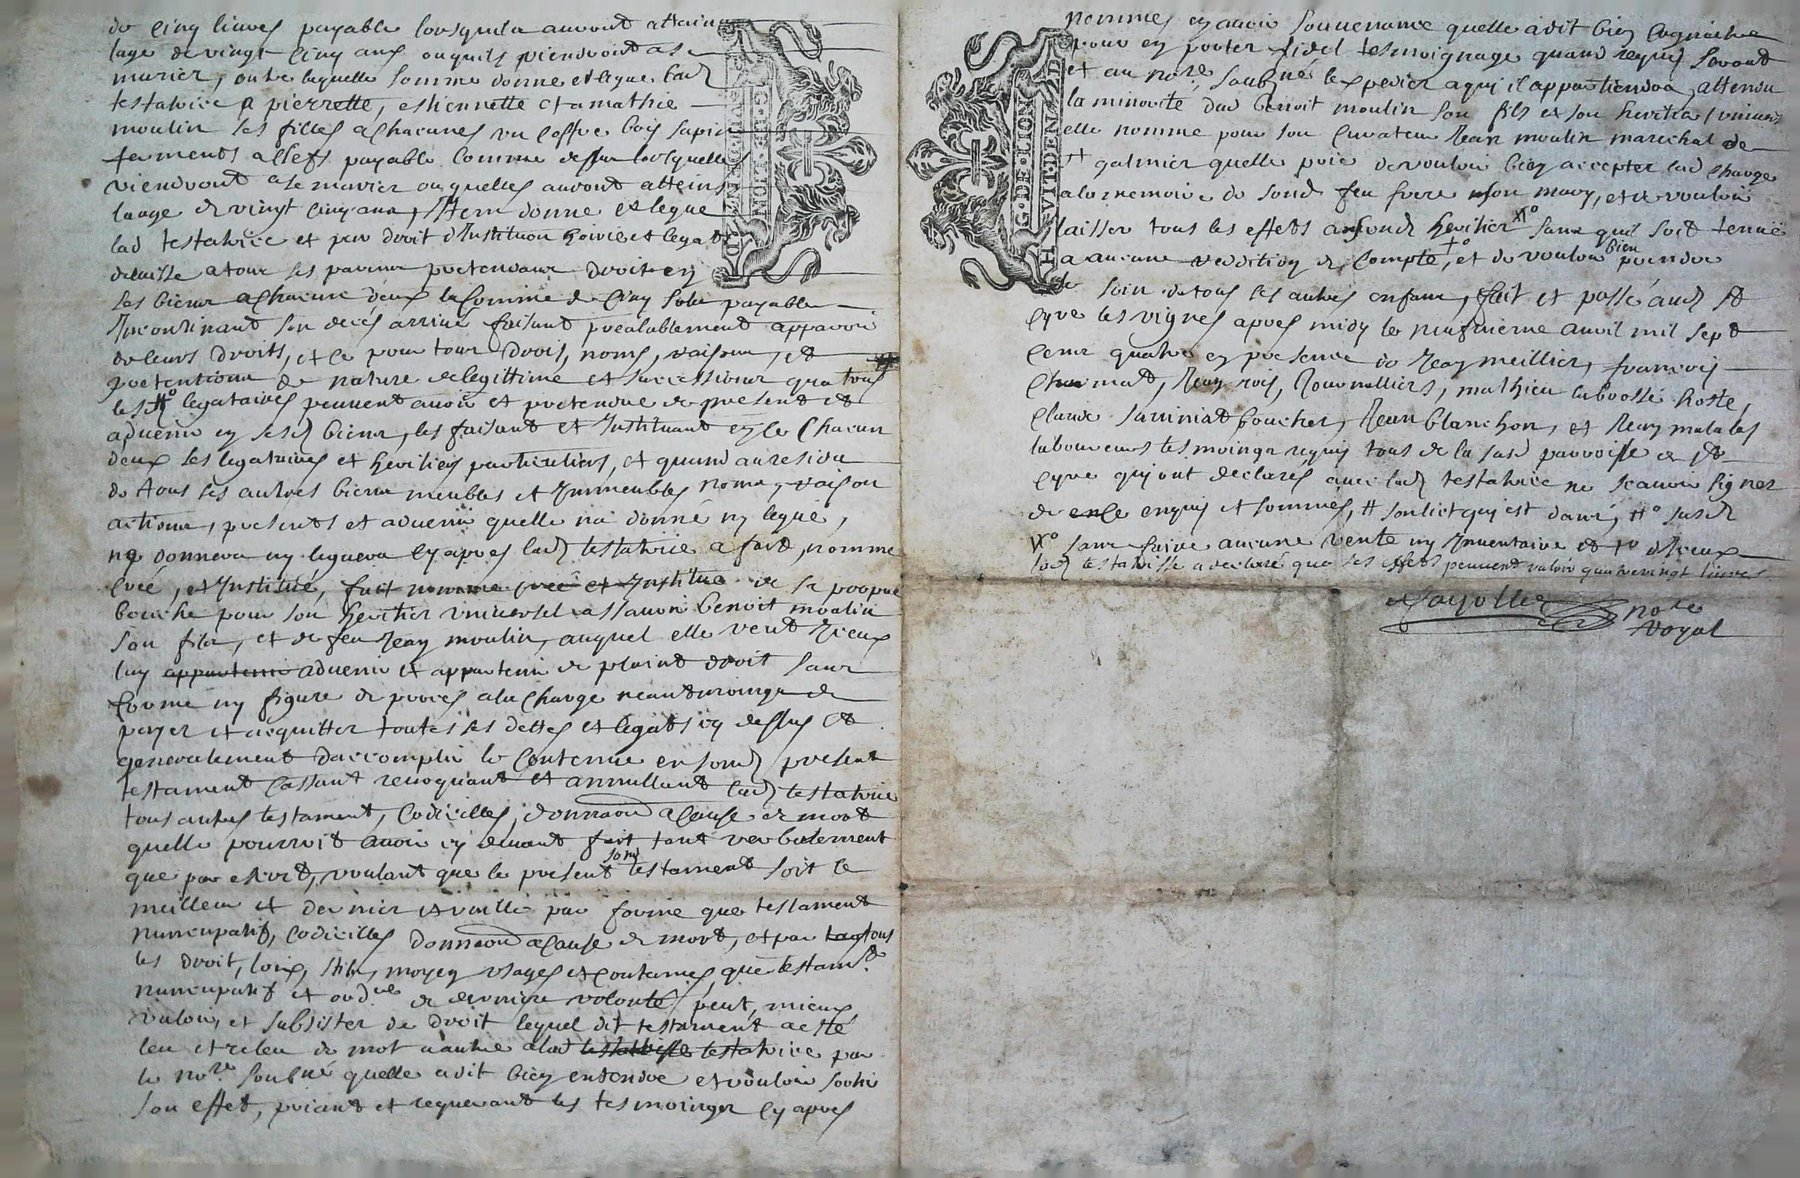 de cinq livres payable lorsquila auront attain
lage de vingt cinq ans ou quils viendront a se
marier, outre laquelle somme donne et legue lad
testatrice a pierrette, estiennette et amathie
moulin ses filles a chacunes un coffre bois sapin
ferments a clefs payable comme dessus lorsquelles
viendront a se marier ou quelles auront atteins
laage de vingt cinq ans, Item donne et legue
lad testatrice et par droit dInstitution hoirie et legat
delaisse a tous ses parens pretendans droit en
ses biens a chacun deux la somme de cinq sols payable
Incontinant son deces arrivé faisant prealablement apparoir
de leurs droits, et ce pour tous drois, noms, raisons, et
pretentions de nature de legittime et successions que tous
les legataires peuvent avoir et pretendre de present et
advenir en sesd biens, les faisant et Instituant en ce chacun
deux ses legataires et heritiers particuliers, et quand au residu
de tous ses autres biens meubles et Immeubles noms, raison
actions, presents et advenir quelle na donné ny legué,
ne donnera ny leguera cy apres lad testatrice a fait, nomme
creé, et Institué, fait nomme creé et Institue de sa propre
bouche pour son heritier universel a scavoir benoit moulin
son fils, et de feu Jean moulin, auquel elle veut Iceux
luy appartenir advenir et appartenir de plaint droit sans
forme ny figure de proces a la charge neantmoings de
payer et acquitter toutes ses dettes et legats cy dessus et
generalement daccomplir le contenue en sond present
testament cassant revoquant et annullant lad testatrice
tous autres testament, codicilles, donnaon a cause de mort
quelle pourroit avoir cy devant fait tant verbalement
que par escrit, voulant que le present sond testament soit le
meilleur et dernier et vaille par forme que testament
nuncupatif, codicilles donnaon a cause de mort, et par tous
les droit, loix, stile, moyen usages et coutumes que testamt
nuncupatif et ordre de derniere volonté peut, mieux
valoir, et subsister de droit lequel dit testament a esté
leu et releu de mot a autre a lad testatrice testatrice par
le nore soubné quelle a dit bien entendre et vouloir sortir
son effet, priant et requerant les tesmoings cy apres
nommes en avoir souvenance quelle a dit bien cognoitre
pour en porter fidel tesmoignage quand requis seront
et au nore soubné lexpedier a qui il appartiendra, attendu
la minorite dud benoit moulin son fils et son heritier universel
elle nomme pour son curateur Jean moulin marechal de
st galmier quelle prie de vouloir bien accepter lad charge
a la memoire de sond feu frere son mary, et de vouloir
laisser tous les effets a sond heritier xo sans quil soit tenue
a aucune reddition de compte, +o et de vouloir bien prendre
le soin de tous les autres enfans, fait et passé aud st
cyre les vignes apres midy le neufvieme avril mil sept
cens quatre en presence de Jean meillier, francois
chermat, Jean rois, Journalliers, mathieu labrosse hoste,
claude sariniat boucher, Jean blanchon, et Jean matalas
laboureurs tesmoings requis tous de la susd parroisse de st
cyre qui ont declarés avec lad testatrice ne scavoir signer
de ence enquis et sommes, # son lict qui est danré, #o susd
xo sans faire aucune vente ny Inventaire et +o dIceux
lad testatrisse a declaré que ses effets peuvent valoir quatrevingt livres
Jayollie nore
royal
G·DE·LION
HVITDENAD
G·DE·LION